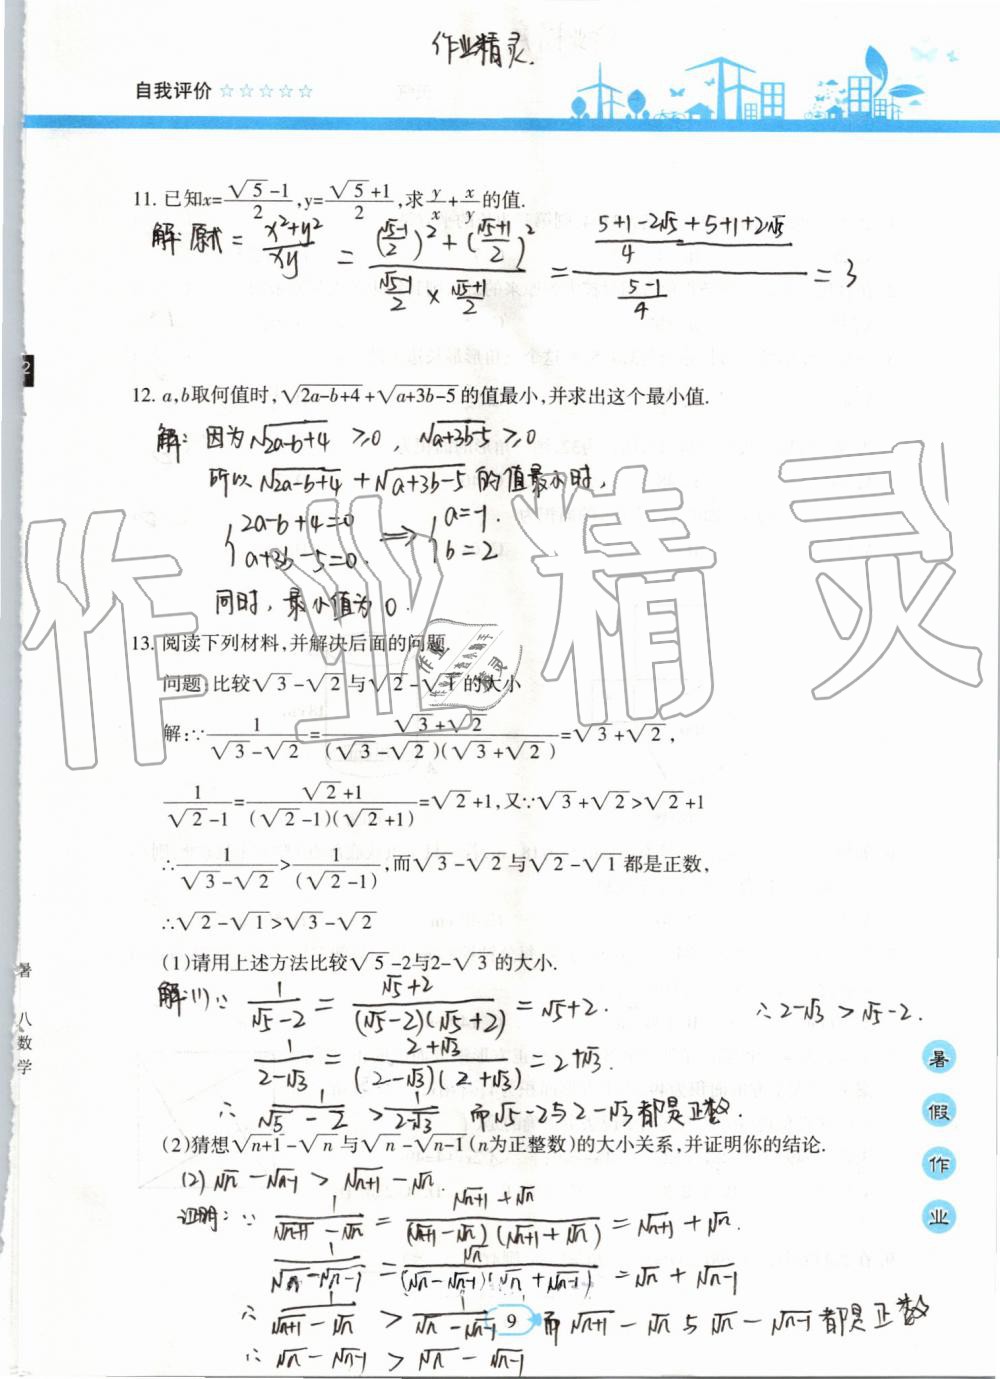 作业精灵.
自我评价 ☆☆☆☆☆
11. 已知x=(√5-1)/2,y=(√5+1)/2,求y/x+x/y的值.
解: 原式 = (x²+y²)/(xy) = (((√5-1)/2)²+((√5+1)/2)²)/((√5-1)/2×(√5+1)/2) = ((5+1-2√5+5+1+2√5)/4)/((5-1)/4) = 3
12. a,b取何值时,√(2a-b+4)+√(a+3b-5)的值最小,并求出这个最小值.
解: 因为√(2a-b+4) ≥0, √(a+3b-5) ≥0
所以√(2a-b+4) + √(a+3b-5) 的值最小时,
{2a-b+4=0 a+3b-5=0. ⟹ {a=-1. b=2
同时, 最小值为 0.
13. 阅读下列材料,并解决后面的问题.
问题:比较√3-√2与√2-√1的大小
解:∵1/(√3-√2)=(√3+√2)/((√3-√2)(√3+√2))=√3+√2,
1/(√2-1)=(√2+1)/((√2-1)(√2+1))=√2+1,又∵√3+√2>√2+1
∴1/(√3-√2)>1/(√2-1),而√3-√2与√2-√1都是正数,
∴√2-√1>√3-√2
(1)请用上述方法比较√5-2与2-√3的大小.
解:(1)∵ 1/(√5-2) = (√5+2)/((√5-2)(√5+2)) = √5+2. ∴2-√3 > √5-2.
1/(2-√3) = (2+√3)/((2-√3)(2+√3)) = 2+√3.
∴ 1/(√5-2) > 1/(2-√3) 而√5-2与2-√3都是正数.
(2)猜想√(n+1)-√n与√n-√(n-1)(n为正整数)的大小关系,并证明你的结论.
(2)√n-√(n-1) > √(n+1)-√n.
证明: ∵ 1/(√(n+1)-√n) = (√(n+1)+√n)/((√(n+1)-√n)(√(n+1)+√n)) = √(n+1)+√n.
1/(√n-√(n-1)) = √n/((√n-√(n-1))(√n+√(n-1))) = √n+√(n-1)
∴ 1/(√(n+1)-√n) > 1/(√n-√(n-1)) 而√(n+1)-√n与√n-√(n-1)都是正数
∴ √n-√(n-1) > √n-√(n-1)
9
暑
八
数
学
暑
假
作
业
2
作业精灵